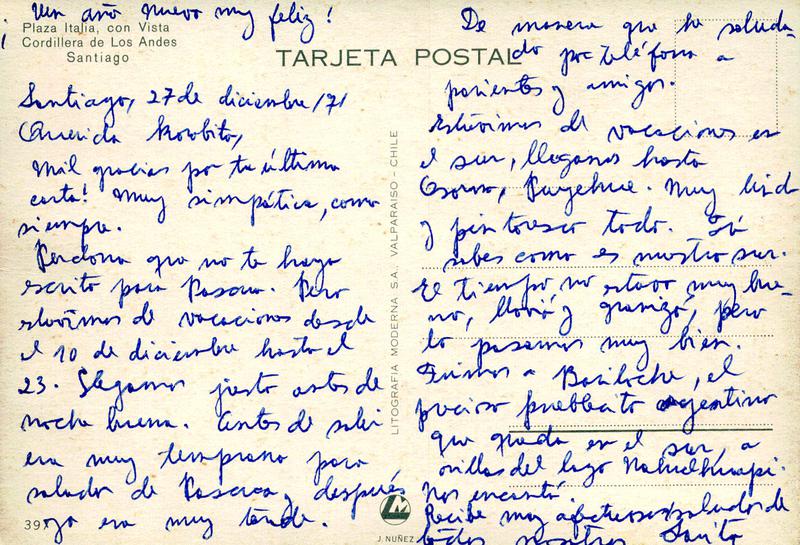 ¡Un año nuevo muy feliz!
Plaza Italia, con Vista
Cordillera de Los Andes
Santiago
TARJETA POSTAL
Santiago, 27 de diciembre/71
Querida
Mil gracias por tu última
carta! Muy simpática, como
siempre.
Perdona que no te haya
escrito para Pascua. Pero
estuvimos de vacaciones desde
el 10 de diciembre hasta el
23. Llegamos justo antes de
noche buena. Antes de salir
era muy temprano para
saludar de Pascua y después
ya era muy tarde.
397
LITOGRAFIA MODERNA S.A. VALPARAISO - CHILE
J. NUÑEZ
De manera que he saluda-
do por teléfono a
parientes y amigos.
Estuvimos de vacaciones en
el sur, llegamos hasta
Osorno, Puyehue. Muy lindo
y pintoresco todo. Tú
sabes como es nuestro sur.
El tiempo no estuvo muy bue-
no, llovió y granizó, pero
lo pasamos muy bien.
Fuimos a Bariloche, el
precioso pueblecito argentino
que queda en el sur, a
orillas del lago Nahuelhuapi.
Nos encantó.
Recibe muy afectuosos saludos de
todos nosotros